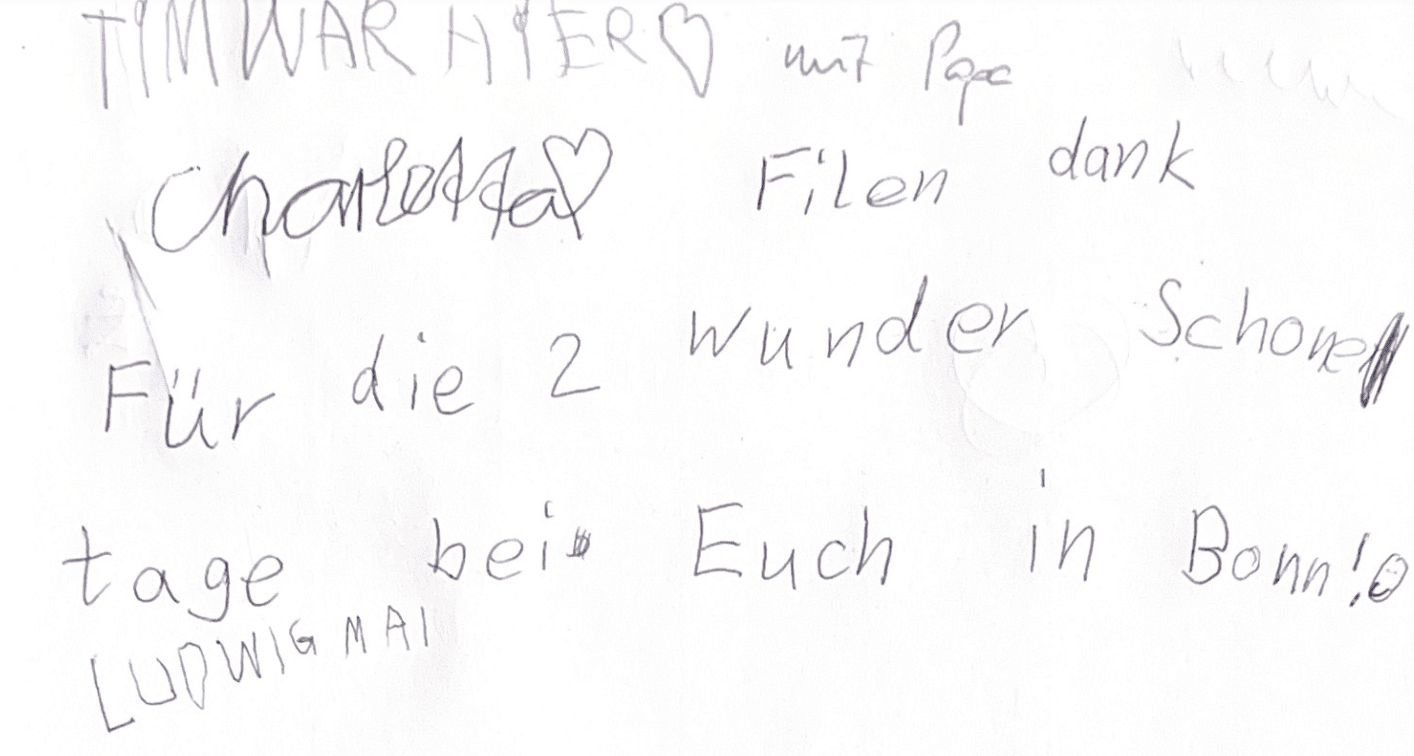 TIM WAR HIER♡ mit Papa
Charlotta♡ Filen dank
Für die 2 wunder Schone
tage bei Euch in Bonn!☺
LUDWIG MAI